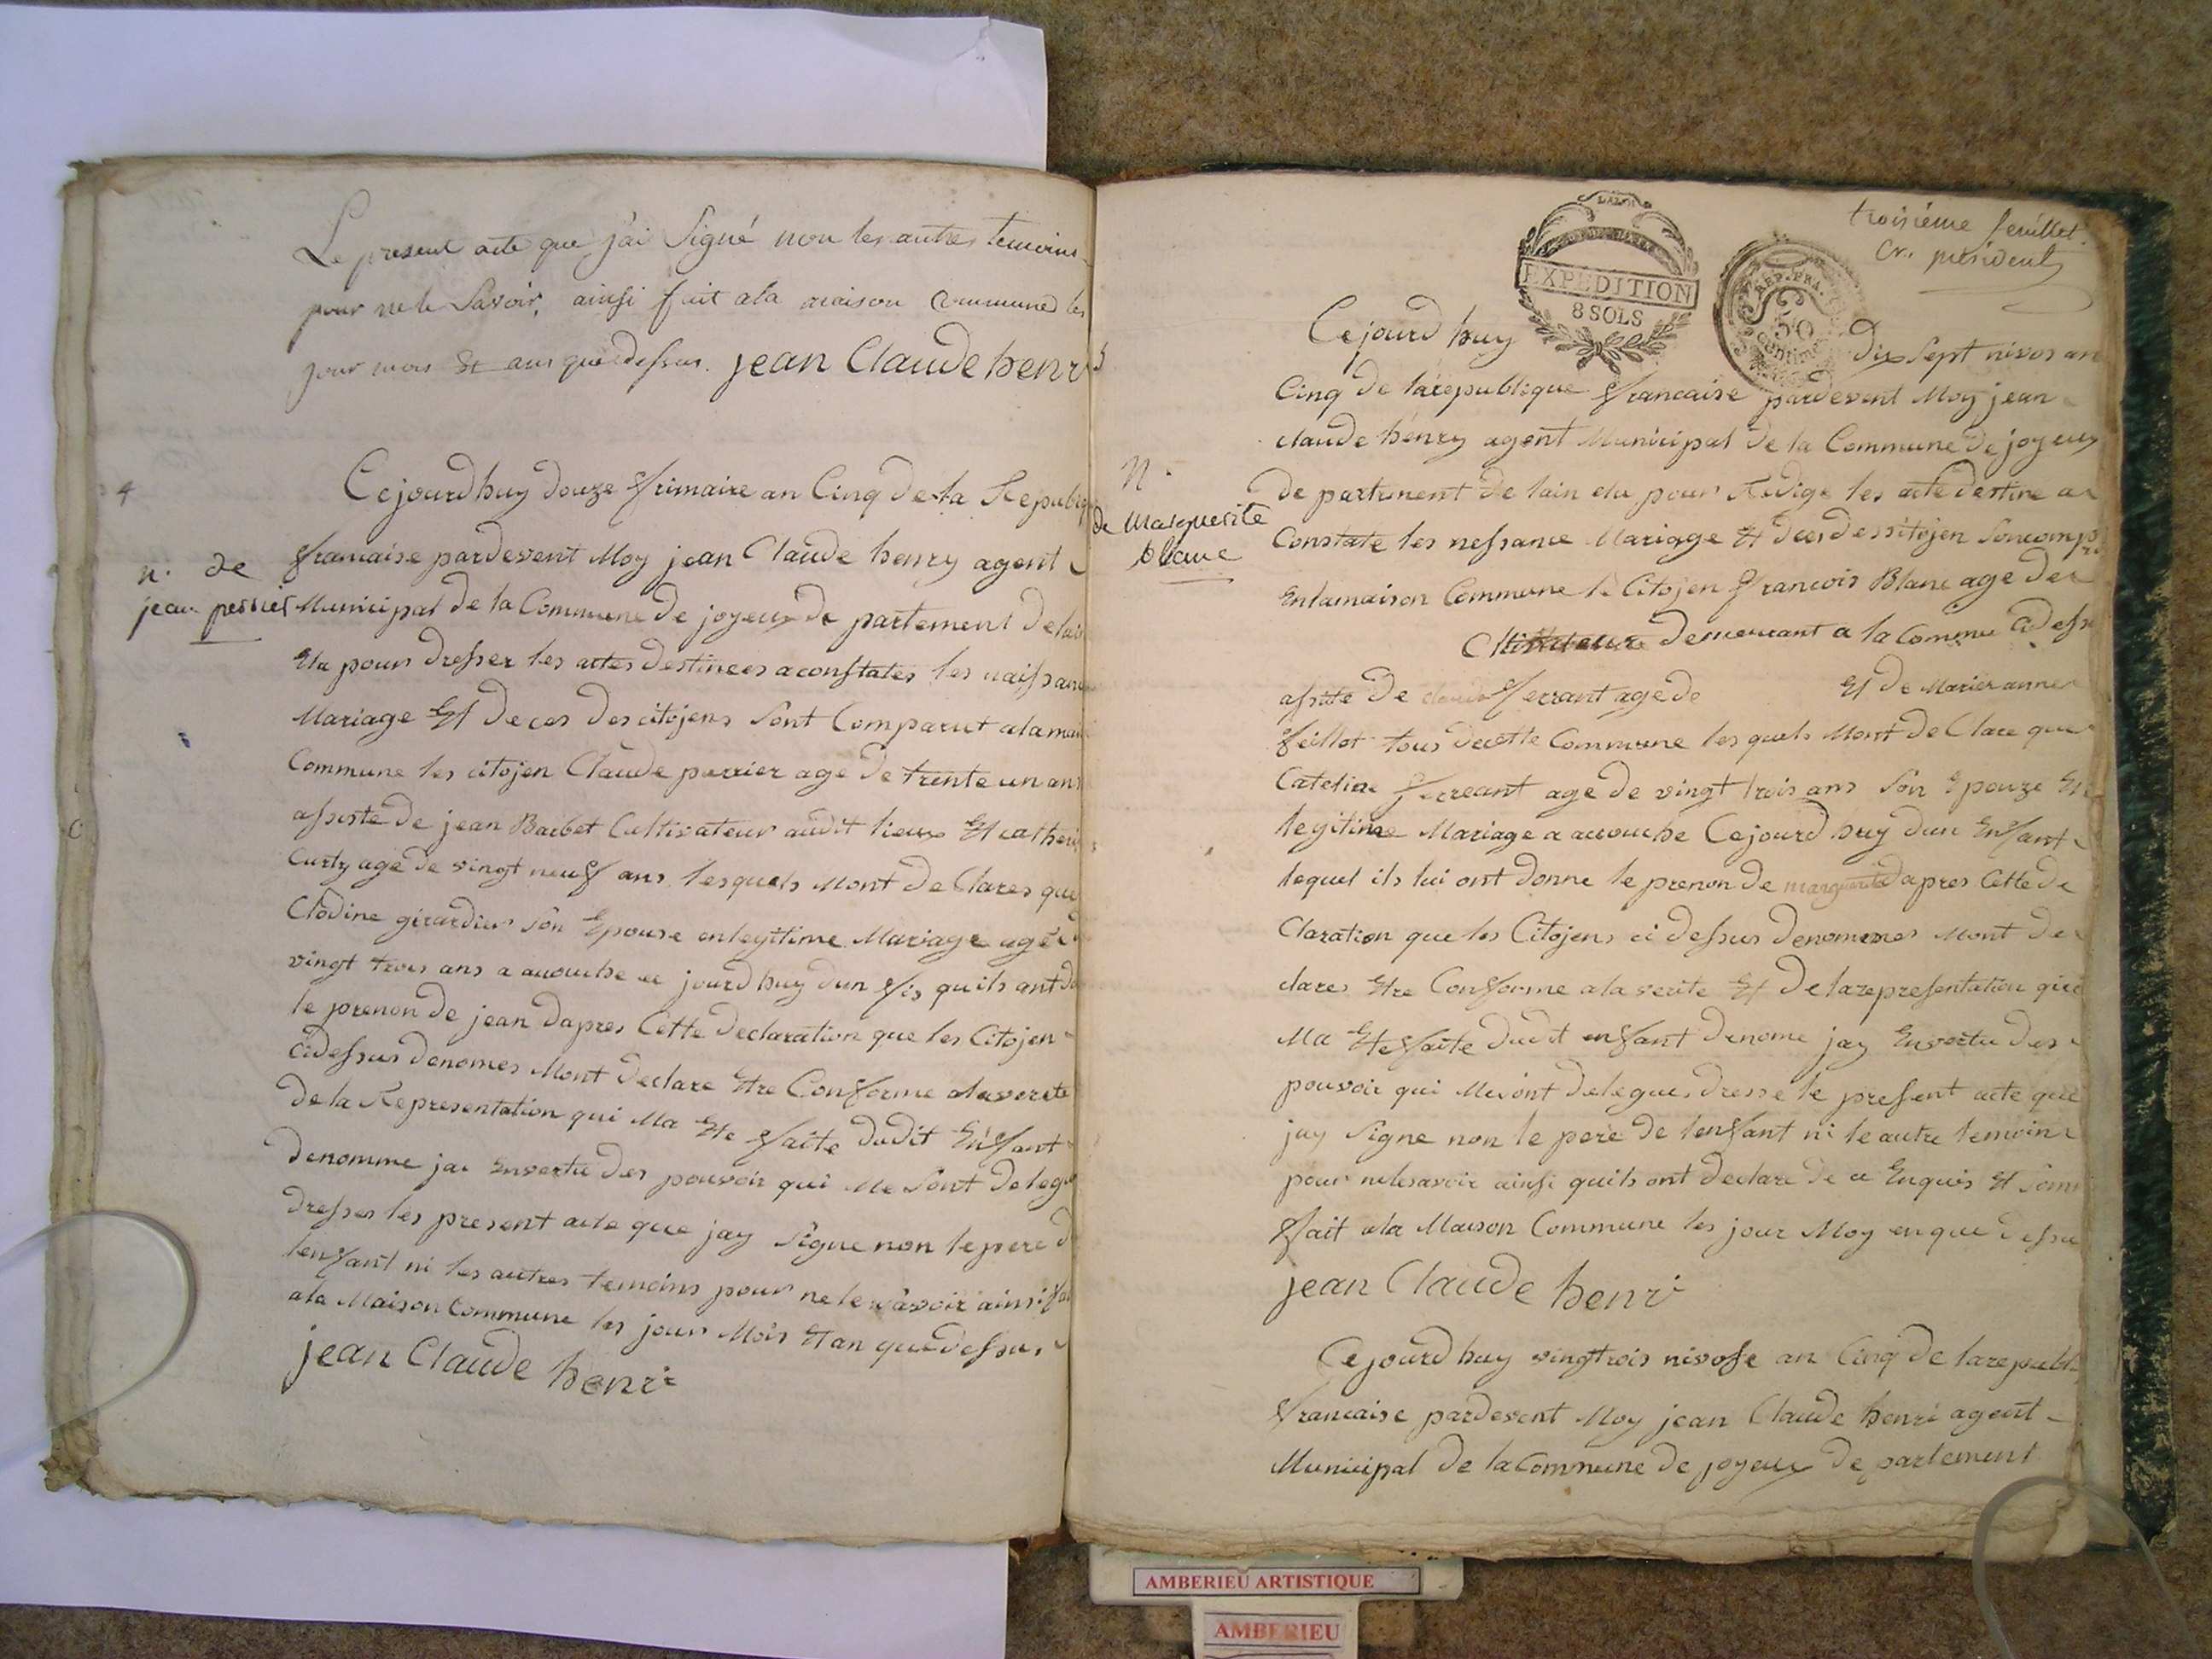 Le present acte que j'ai Signé non les autres temoins
pour ne le Savoir, ainsi fait a la maison commune les
jour mois Et ans que dessus. jean Claude henri
4
Cejourdhuy douze frimaire an Cinq de la Republique
n. de
jean perrier
francaise pardevent Moy jean Claude henry agent
Municipal de la Commune de joyeux de partement de lain
Elu pour dresser les actes destinees a constates les naissance
Mariage Et deces des citojens Sont Comparut a la mai
Commune les citojen Claude perrier age de trente un ans
assiste de jean Barbet Cultivateur audit lieux Et catheri
Curty age de vingt neuf ans lesquels Mont de Clares que
Clodine girardier Son Epouse en legitime Mariage agee
vingt trois ans a accouche ce jourdhuy dun fis quils ont do
le prenon de jean dapres Cette declaration que les Citojen
cidessus denomes Mont declare Etre Conforme a la verite
de la Representation qui Ma Ete faite dudit Enfant
denomme jai Envertu des pouvoir qui Me Sont delegu
dresses les present acte que jay Signe non le pere d
lenfant ni les autres temoins pour ne le savoir ainsi fai
ala Maison Commune les jour Mois Et an que dessus
jean Claude henri
troisiéme feuillet.
président
EXPEDITION
8 SOLS
REP. FRA.
50
Centime
Cejourd huy dix Sept nivos an
Cinq de la republique francaise pardevent Moy jean
claude henry agent Municipal de la Commune de joyeux
n.
de Marguerite
blanc
de partement de lain elu pour Redige les acte destine a
Constate les nessance Mariage Et deces des sitojen Son comp
En lamaison Commune le Citojen francois Blanc age de
demeurant a la Commu Cidess
assite de claude ferrant age de Et de Marie anne
feillot tous de cette Commune les quels Mont de Clare que
Cateline ferreant age de vingt trois ans Son Epouze En
legitime Mariage a accouche Cejourd huy dun Enfant
lequel ils lui ont donne le prenon de marguerite dapres Cette de
Claration que les Citojens ci dessus denommes Mont de
clares Etre Conforme a la verite Et de la representation qui
Ma Ete faite dudit enfant denome jay Envertu des
pouvoir qui Me sont delegues dresse le present acte que
jay Signe non le pere de lenfant ni le autre temoin
pour nelesavoir ainsi quils ont declare de ce Enquis Et Som
fait a la Maison Commune les jour Moy en que dessu
jean Claude henri
Cejourd huy vingtrois nivose an Cinq de la republ
francaise pardevent Moy jean Claude henri agent
Municipal de la Commune de joyeux de partement
AMBERIEU ARTISTIQUE
AMBERIEU